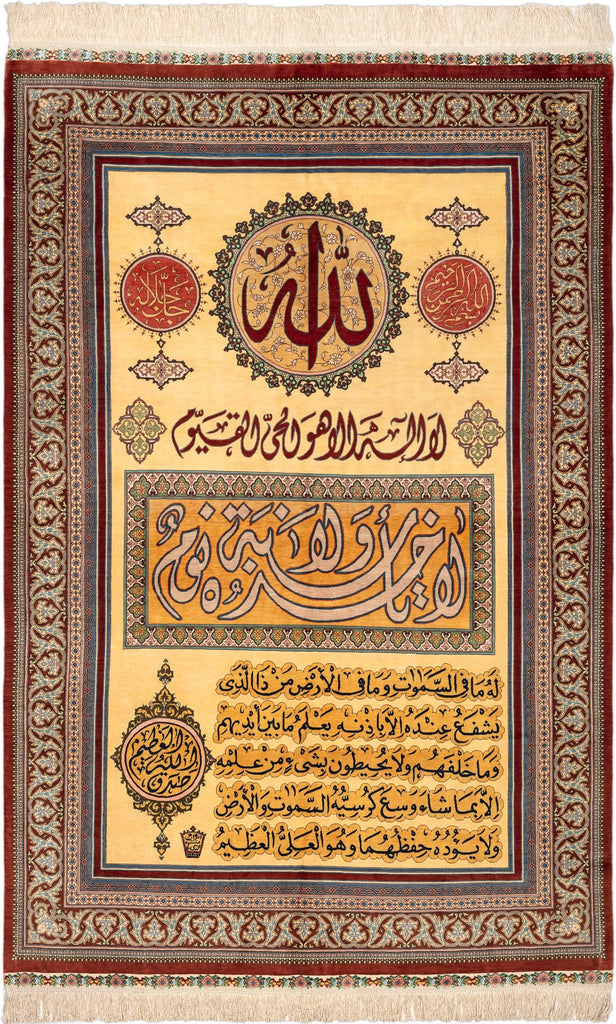 الله
بسم الله الرحمن الرحيم
جل جلاله
لا اله الا هو الحيّ القيّوم
لا تأخذه سنة ولا نومٌ
لَهُ مَا فِی السَّمٰوٰتِ وَمَا فِی الْأَرْضِ مَنْ ذَا الَّذی
یَشْفَعُ عِنْدَهُ اِلّا بِاِذْنِهِ یَعْلَمُ مَا بَیْنَ اَیْدیهِمْ
وَمَا خَلْفَهُمْ وَلَا یُحیطُونَ بِشَیْءٍ مِنْ عِلْمِهِ
اِلّا بِمَا شَاءَ وَسِعَ کُرْسِیُّهُ السَّمٰوٰتِ وَالْأَرْضَ
وَلَا یَؤُدُهُ حِفْظُهُمَا وَهُوَ الْعَلِیُّ الْعَظیمُ
صدق الله العلي العظيم